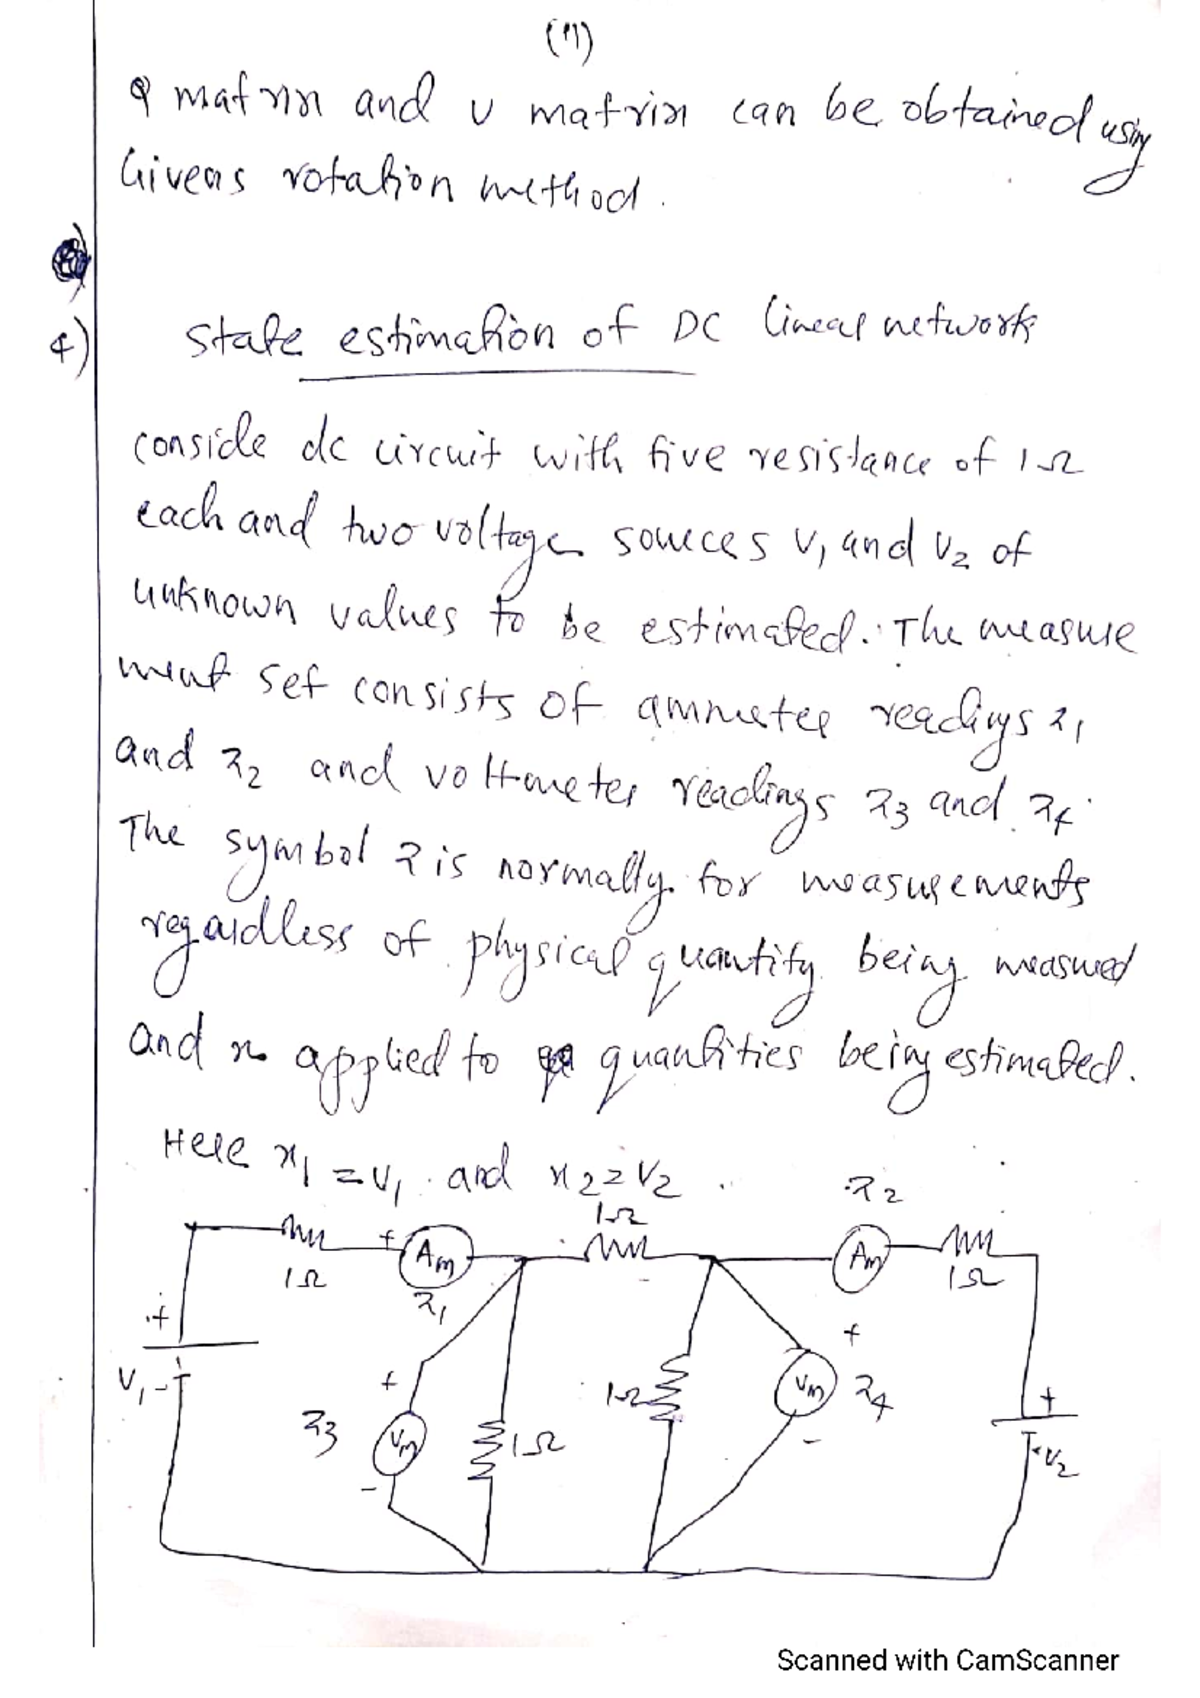 (11)
Q matrix and U matrix can be obtained using
Givens rotation method.
4)
State estimation of DC lineal network
conside dc circuit with five resistance of 1Ω
each and two voltage sources V1 and V2 of
unknown values to be estimated. The measure
ment set consists of ammeter readings z1
and z2 and voltmeter readings z3 and z4.
The symbol z is normally for measurements
regardless of physical quantity being measured
and x applied to quantities being estimated.
Here x1 = V1 and x2 = V2
z2
1Ω
+ Am
Am
1Ω
z1
1Ω
+
V1 -
+
z3
Vm
-
1Ω
1Ω
+
Vm
z4
-
+
- V2
Scanned with CamScanner